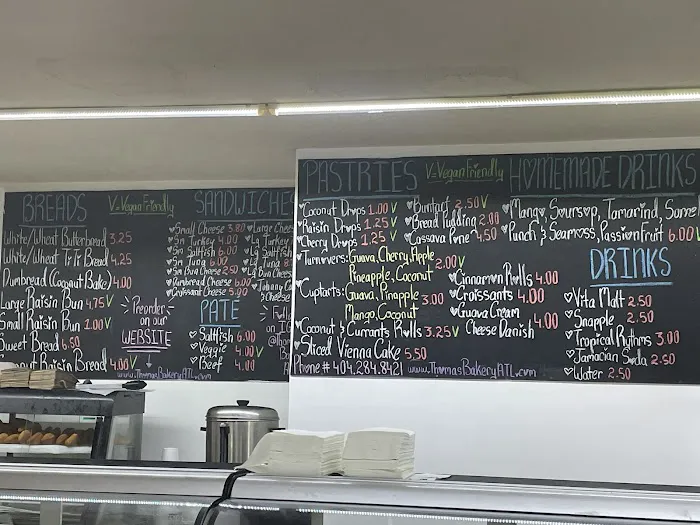 BREADS
V=Vegan Friendly
White/Wheat Butterbread 3.25
White/Wheat TiTi Bread 4.25
Dumbread (Coconut Bake) 4.00
Large Raisin Bun 4.75 V
Small Raisin Bun 2.00 V
Sweet Bread 6.50
Raisin Bread 4.00 V
Preorder
on our
WEBSITE
SANDWICHES
Small Cheese 3.80
Sm Turkey 4.00
Sm Saltfish 6.00
Sm Tuna 6.00
Sm Bun Cheese 2.50
Dumbread Cheese 6.00
Croissant Cheese 5.90
Large Chees
Lg Turkey
Lg Saltfish
Lg Tuna
Lg Bun Chees
PATE
Saltfish 6.00
Veggie 4.00 V
Beef 4.00
www.ThomasBakeryATL.com
PASTRIES
V=Vegan Friendly
Coconut Drops 1.00 V
Raisin Drops 1.25 V
Cherry Drops 1.25 V
Turnovers: Guava, Cherry, Apple
Pineapple, Coconut 2.00 V
Cuptarts: Guava, Pineapple 3.00
Mango, Coconut
Coconut & Currants Rolls 3.25 V
Sliced Vienna Cake 5.50
Phone # 404.284.8421 www.ThomasBakeryATL.com
Buntart 2.50 V
Bread Pudding 2.00
Cassava Pone 4.50
Cinnamon Rolls 4.00
Croissants 4.00
Guava Cream
Cheese Danish 4.00
HOMEMADE DRINKS
Mango, Soursop, Tamarind, Sorrel
Punch & Seamoss, Passion Fruit 6.00 V
DRINKS
Vita Malt 2.50
Snapple 2.50
Tropical Rhythms 3.00
Jamaican Soda 2.50
Water 2.50